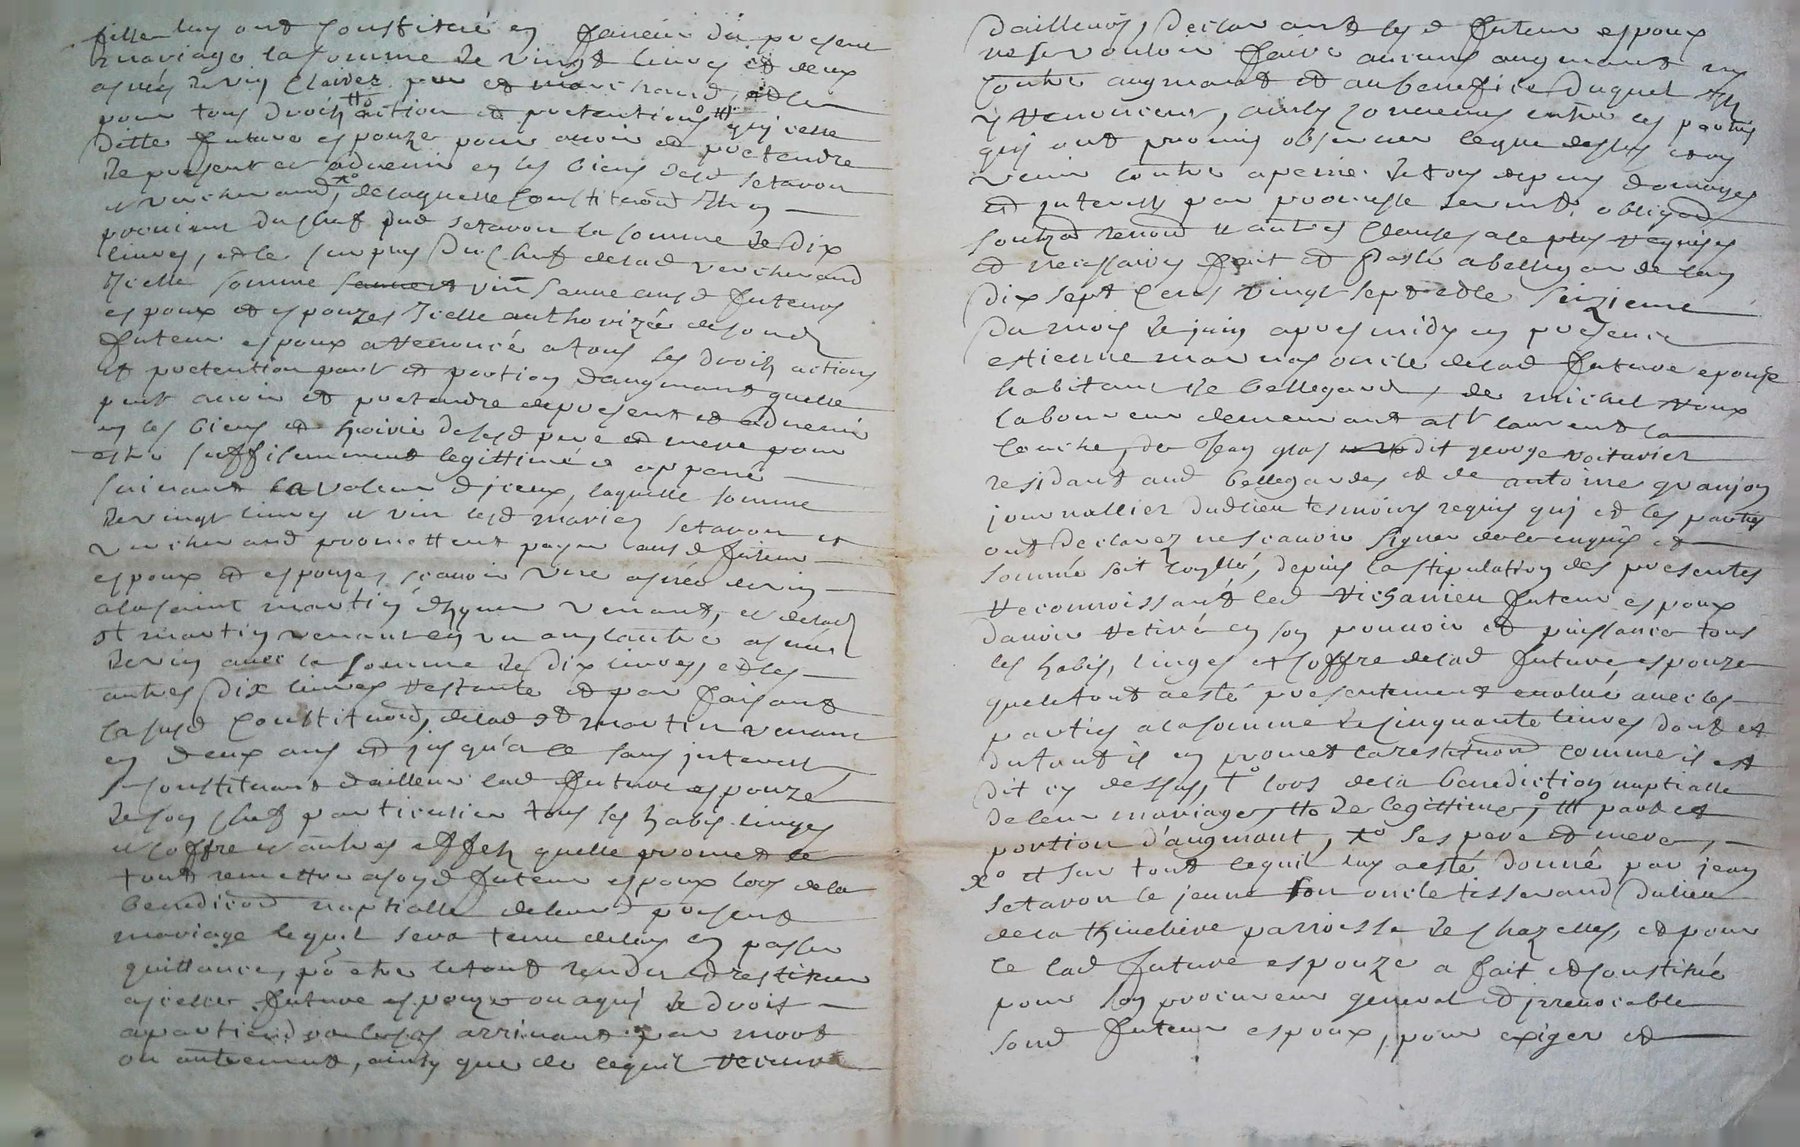 fille luy ont constitué en faveur du present
mariage la somme de vingt livres et deux
asnés de vin clairez pur et marchand, et ce
pour tous droits action et pretentions qu'icelle
ditte future espouze pour avoir et pretendre
de present et advenir en les biens desd setavon
et vercherand, de laquelle constituaon
provient du chef dud setavon la somme de dix
livres, et le surplus du chef de lad vercherand
Icelle somme vin ausd futeurs
espoux et espouzes Icelle authorizée de sond
futeur espoux a renoncé a tous les droits actions
et pretention part et portion d'augmant quelle
peut avoir et pretendre de present et advenir
en les biens et hoirie desd pere et mere pour
estre suffisamment legittimée appané
suivant la valeur d'iceux, laquelle somme
de vingt livres et vin lesd mariez setavon et
vercherand promettent payer ausd futeur
espoux et espouzes, scavoir une asnée de vin
a la saint martin d'hyver venant, et de lad
st martin venant en un an l'autre asnée
de vin avec la somme de dix livres, et les
autres dix livres restante et par faisant
la susd constituaon, de lad st martin venant
en deux ans et jusqu'a ce sans interest
se constituant d'ailleur lad future espouze
de son chef particulier tous les habis linges
et coffre et autres effets quelle promet de
tout remettre a sond futeur espoux lors de la
benediction nuptialle de leurd present
mariage lequel sera tenu de luy en passer
quittance, po estre letout rendu et restitué
a icelle future espouze ou a qui de droit
apartiend ou le cas arrivant par mort
ou autrement, ainsy que de lequil
d'ailleurs, declarant lesd futeur espoux
ne se vouloir faire aucuns augmant ny
contre augmant et au benefice duquel Ils
y renoncent, ainsy convenu entre les parties
qui ont promis observer le que dessus et ny
venir contre a peine de tous depens domages
et interests par promesse serment, obligaon
soubzon renon et autres clauses a ce plus requises
et necessaires fait et passé a bellegarde l'an
dix sept cens vingt sept et le seizieme
du mois de juin apres midy en presence
estienne marnas oncle de lad future epouse
habitant de bellegarde, de michel Roux
laboureur demeurant a st laurent la
conche, de Jean gras dit george voitavier
residant aud bellegardes et de antoine granjon
journallier dudlieu tesmoins requis qui et les parties
ont declarez ne scavoir signer de ce enquis et
sommé soit contrôllé, depuis la stipulation des presentes
reconnoissant led Vichanieu futeur espoux
d'avoir retiré en son pouvoir et puissance tous
les habis, linges et coffre de lad future espouze
que letout a esté presentement evalué avec les
parties a la somme de cinquante livres dont et
du tout il en promet la restituaon comme il est
dit cy dessus, to lors de la benediction nuptialle
de leur mariage, tto de legittime, o ttt part et
portion d'augmant, xo ses pere et mere,
xo et sur tout lequil luy a esté donné par jean
setavon le jeune son oncle tisserand du lieu
de la thineliere parroisse de chazelles, et pour
ce lad future espouze a fait et constitué
pour son procureur general et irrevocable
sond futeur espoux, pour exiger et